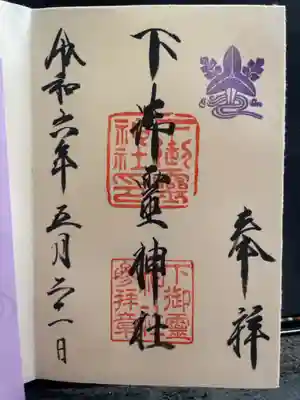 奉拝
下御霊神社
下御靈
神社印
下御靈
神社
参拝章
令和六年五月二十一日